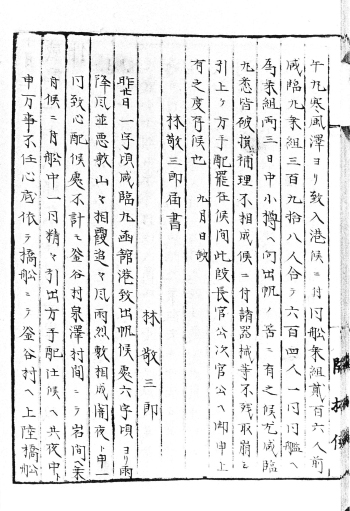 午丸寒風澤ヨリ致入港候ニ付同船乗組貳百六人前
咸臨丸乗組三百九拾八人合テ六百四人一同同艦ヘ
為乗組両三日中小樽ヘ向出帆ノ筈ニ有之候尤咸臨
丸悉皆破損補理不相成候ニ付諸器械等不残取崩シ
引上ケ方手配罷在候間此段長官公次官公ヘ御申上
有之度存候也　九月日欠
林敬三郎届書
林敬三郎
昨廿日一字頃咸臨丸函館港致出帆候處六字頃ヨリ雨
降風並悪敷山々相霞追々風雨烈敷相成闇夜ト申一
同致心配候處不計モ釜谷村泉澤村間ニテ岩間ヘ乗
候ニ付船中一同精々引出方手配仕候ヘ共夜中ト
申万事不任心底依テ橋船ニテ釜谷村ヘ上陸橋船